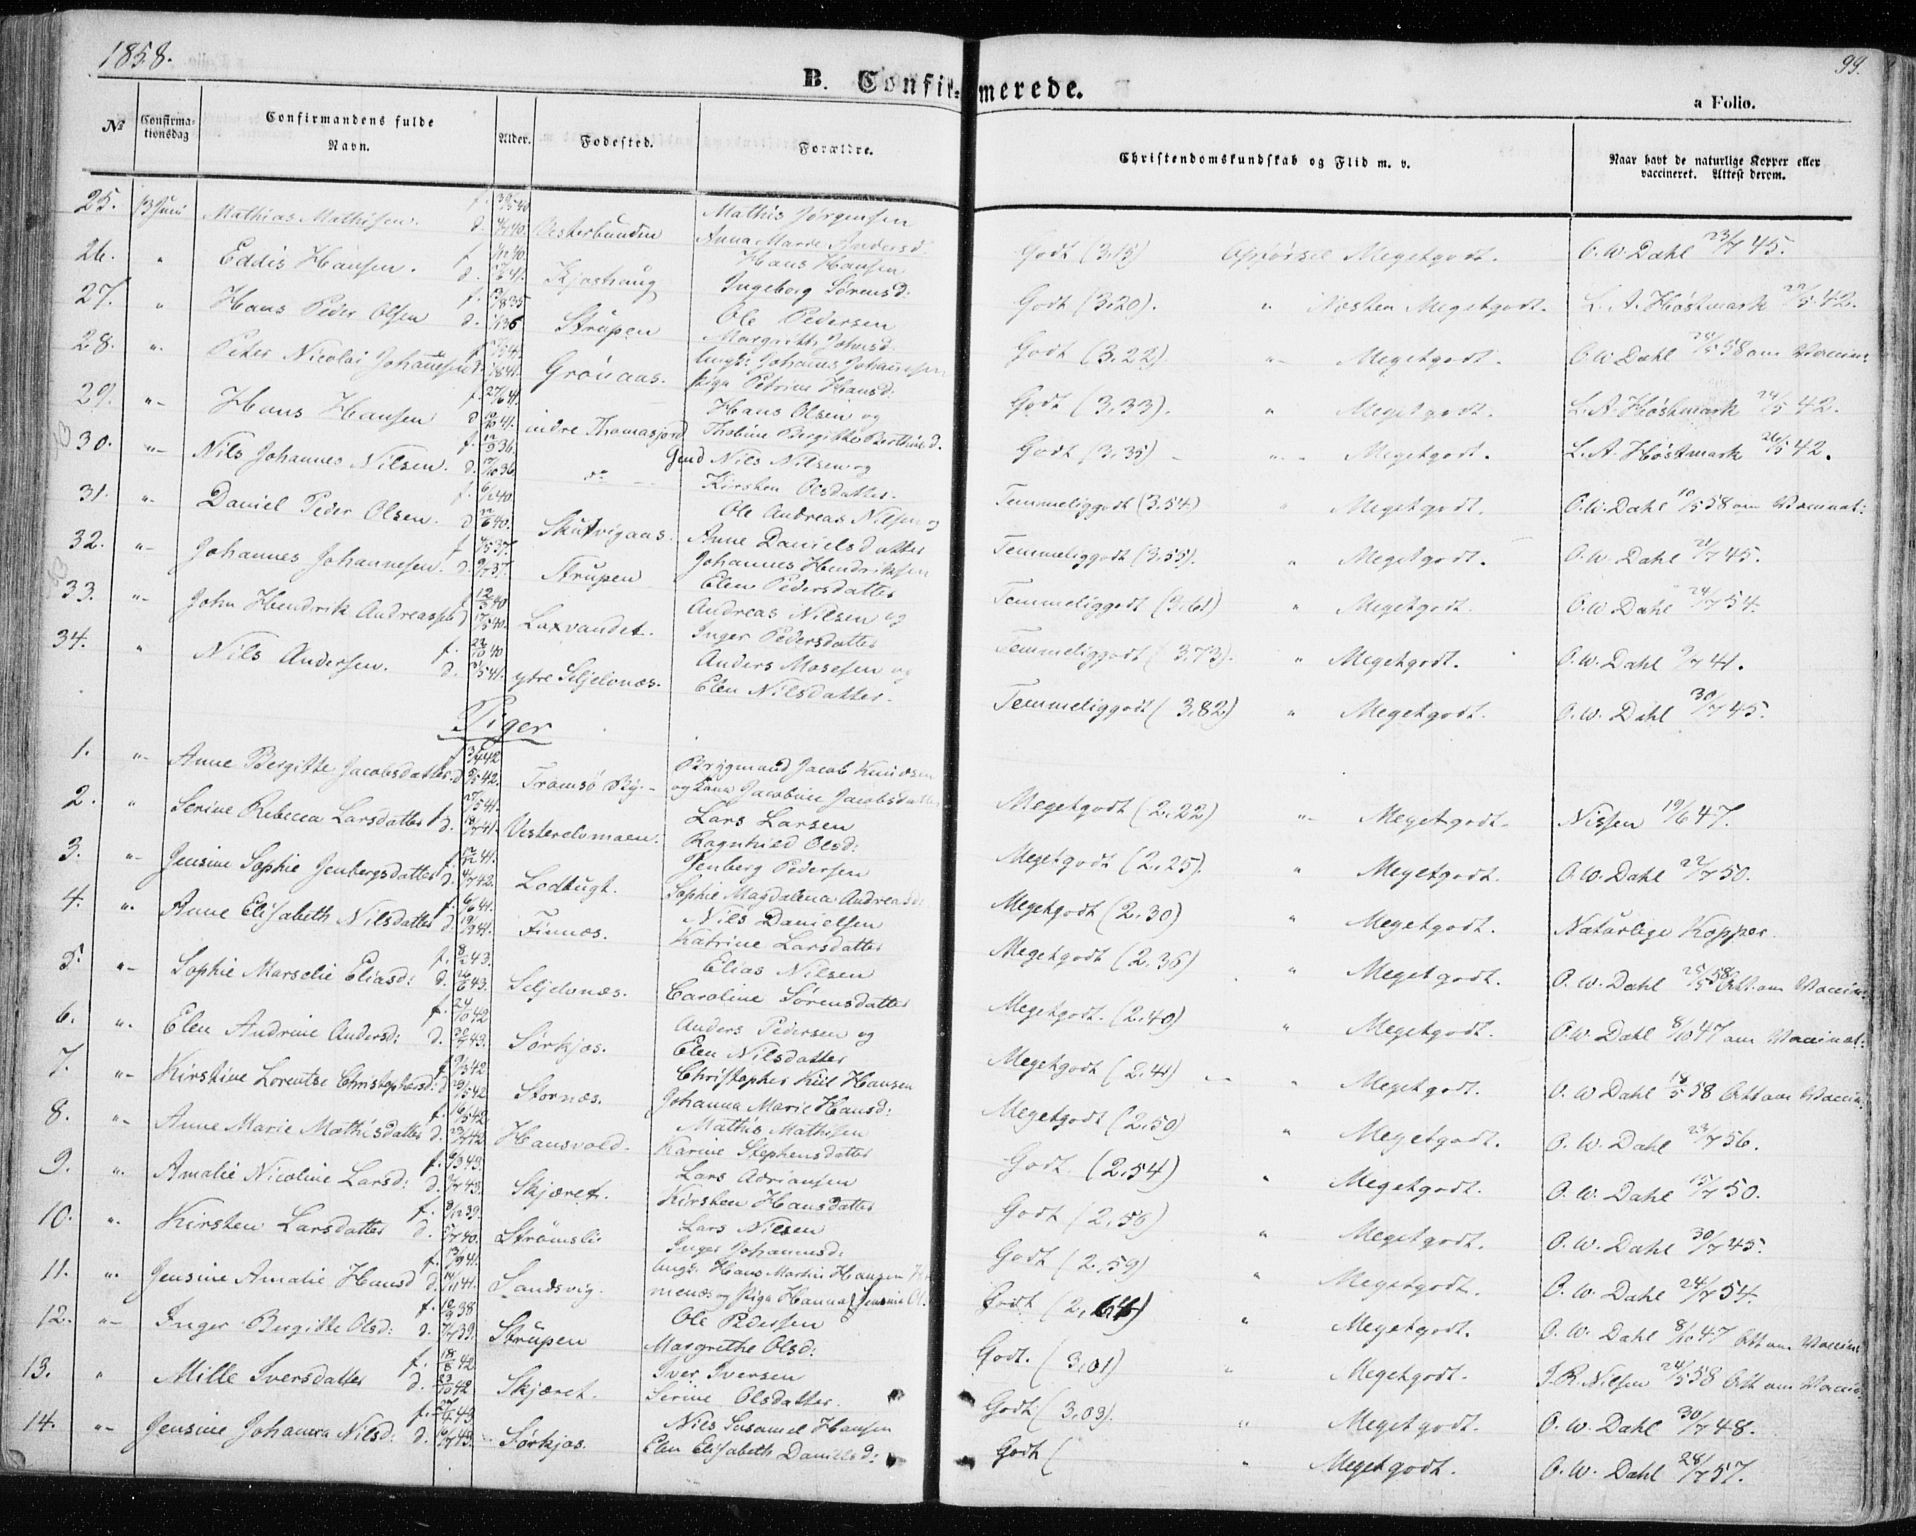 1858.
99.
B. Confirmerede.
a Folio.
No Confirmationsdag Confirmandens fulde Navn. Alder. Fødested. Forældre. Christendomskundskab og Flid m. v. Naar havt de naturlige Kopper eller vaccineret. Attest derom.
25. 13 Juni Mathias Mathisen. Vesterbunden Mathis Jørgensen
Anna Marie Andersd. Godt (3,15) Opførsel Megetgodt. O. W. Dahl 23/7 45.
26. " Eddis Hansen. Kjoshaug Hans Hansen
Ingeborg Sørensd: Godt (3,20). " Næsten Megetgodt. L. A. Høstmark 42.
27. " Hans Peder Olsen Strupen Ole Pedersen
Margrethe Johnsd. Godt (3,22) " Megetgodt. O. W. Dahl 58 om Vaccin:
28. " Peter Nicolai Johansen Grønaas. Ungk: Johannes Johannesen
Piga Petrine Hansd: Godt (3,33). " Megetgodt. L. A. Høstmark 24/5 42.
29. " Hans Hansen f. 27/6 41. indre Thomasjord Hans Olsen og
Thobine Bergitte Berthine d. Godt (3,35) " Megetgodt. L. A. Høstmark 26/5 42.
30. " Nils Johannes Nilsen. do Gmd Nils Nilsen og
Kirsten Olsdatter. Temmeliggodt (3,54) " Megetgodt. O. W. Dahl 10/5 58 om Vaccinat:
31. " Daniel Peder Olsen. Skutvigaas. Ole Andreas Nilsen og
Anne Danielsdatter Temmeliggodt (3,55). " Megetgodt. O. W. Dahl 21/7 45.
32. " Johannes Johannesen. Strupen Johannes Hendriksen
Elen Pedersdatter Temmeliggodt (3,61) " Megetgodt. O. W. Dahl 24/7 54.
33. " John Hendrik Andreassen Laxvandet. Andreas Nilsen og
Inger Pedersdatter Temmeliggodt (3,73). " Megetgodt. O. W. Dahl 9/7 41.
34. " Nils Andersen. ytre Seljelvnæs. Anders Mosesen og
Elen Nilsdatter. Temmeliggodt (3,82) " Megetgodt. O. W. Dahl 30/7 45.
Piger
1. " Anne Bergitte Jacobsdatter Tromsö By. Brygmand Jacob Knudsen
og Kone Jacobine Jacobsdatter Megetgodt (2,22) " Megetgodt. Nissen 19/6 47.
2. " Serine Rebecca Larsdatter Vesterelvmoen. Lars Larsen
Ragnhild Olsd: Megetgodt (2,25). " Megetgodt. O. W. Dahl 50.
3. " Jensine Sophie Jenbergsdatter Lodbugt. Jenberg Pedersen
Sophie Magdalena Andreasd: Megetgodt (2,30) " Megetgodt. Naturlige Kopper.
4. " Anne Elisabeth Nilsdatter Finnæs. Nils Danielsen
Katrine Larsdatter Megetgodt (2,36) " Megetgodt. O. W. Dahl 25/5 58 Att. om Vaccin:
5. " Sophie Marselie Eliasd: f. 8/2 43. Seljelvnæs. Elias Nilsen
Caroline Sørensdatter Megetgodt. (2,40) " Megetgodt. O. W. Dahl 8/10 47 om Vaccinat:
6. " Elen Andrine Andersd: f. 24/10 42 Sørkjos. Anders Pedersen og
Elen Nilsdatter Megetgodt (2,41) " Megetgodt. O. W. Dahl 18/5 58 Att om Vaccin:
7. " Kirstine Lorentse Christophersd: Stornæs. Christopher Kiil Hansen
Johanna Marie Hansd: Megetgodt (2,50) " Megetgodt. O. W. Dahl 23/7 56.
8. " Anne Marie Mathisdatter Hansvold. Mathis Mathisen
Karine Stephensdatter Godt. (2,54) " Megetgodt. O. W. Dahl 15/7 50.
9. " Amalie Nicoline Larsd: Skjæret. Lars Adriansen
Kirsten Hansdatter Godt (2,56) " Megetgodt. O. W. Dahl 30/7 45.
10. " Kirsten Larsdatter Strømsli Lars Nilsen
Inger Johannsd: Godt (2,59) " Megetgodt. O. W. Dahl 24/7 54.
11. " Jensine Amalie Hansd Sandsvig. Ungk: Hans Martin Hansen
menæs og Piga Hanna Jensine Ol. Godt (2,64) " Megetgodt. O. W. Dahl 8/10 47 Att om Vaccin:
12. " Inger Birgitte Olsd: Strupen Ole Pedersen
Margrethe Olsd: Godt. (3,01) " Megetgodt. J. R. Nilsen 24/5 58 Att om Vaccin:
13. " Mille Iversdatter f. 18/8 42 d. 23/10 42 Skjæret. Iver Iversen
Serine Olsdatter. Godt. (3,03). " Megetgodt. O. W. Dahl 30/7 48.
14. " Jensine Johanna Nilsd: Sørkjos. Nils Susamel Hansen
Elen Elisabeth Danielsd: Godt ( " Megetgodt. O. W. Dahl 24/7 57.